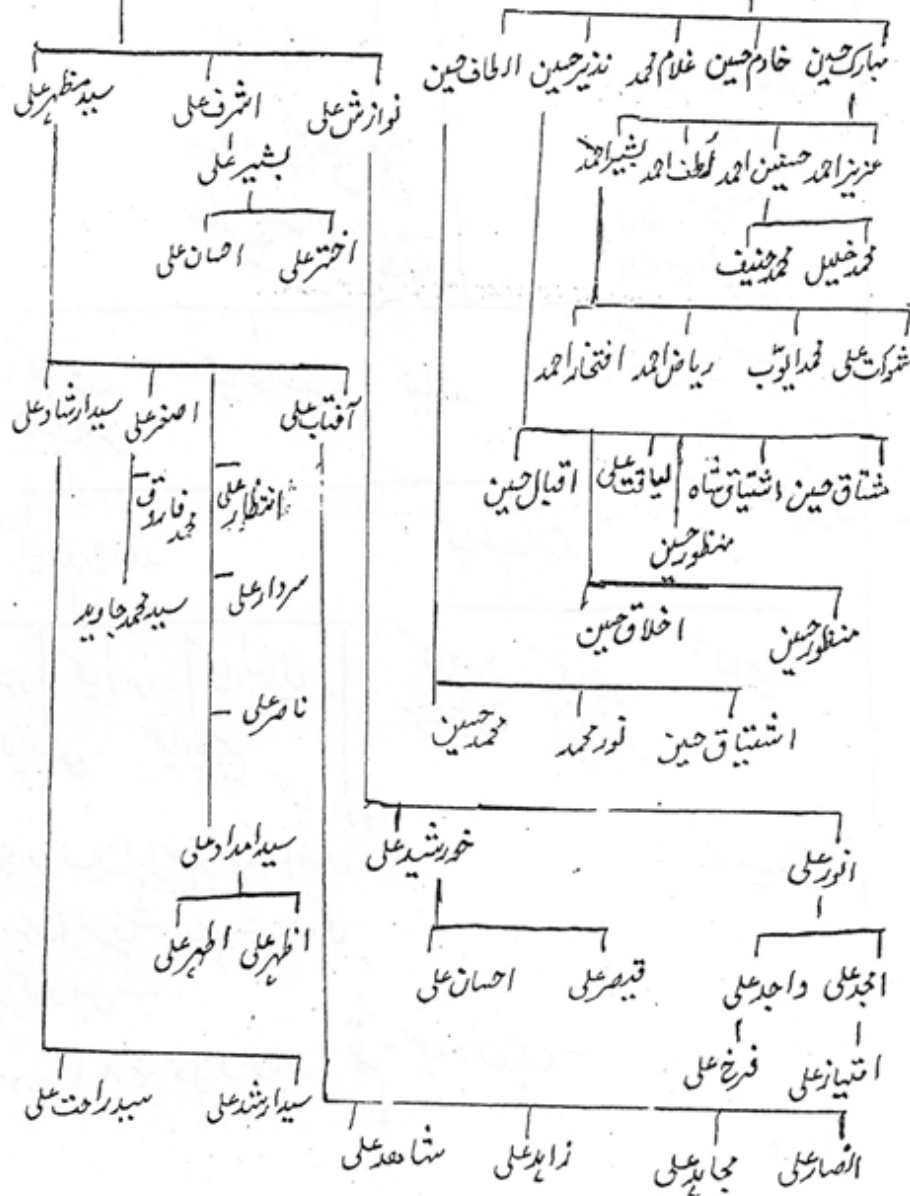 مبارک حسین خادم حسین غلام محمد نذیر حسین الطاف حسین
نوازش علی اشرف علی سید مظہر علی
عزیز احمد حسنین احمد لطف احمد بشیر احمد
بشیر علی
محمد خلیل محمد حنیف
اختر علی احسان علی
شوکت علی محمد ایوب ریاض احمد افتخار احمد
آفتاب علی اصغر علی سید ارشاد علی
مشتاق حسین اشتیاق شاہ لیاقت علی اقبال حسین
انتظار علی محمد فاروق
منظور حسین
سردار علی سید محمد جاوید
منظور حسین اخلاق حسین
ناصر علی
اشتیاق حسین نور محمد محمد حسین
سید امداد علی
انور علی خورشید علی
اظہر علی اطہر علی
امجد علی واجد علی قیصر علی احسان علی
امتیاز علی فرخ علی
سید ارشد علی سید راحت علی
انصار علی مجاہد علی زاہد علی شاھد علی